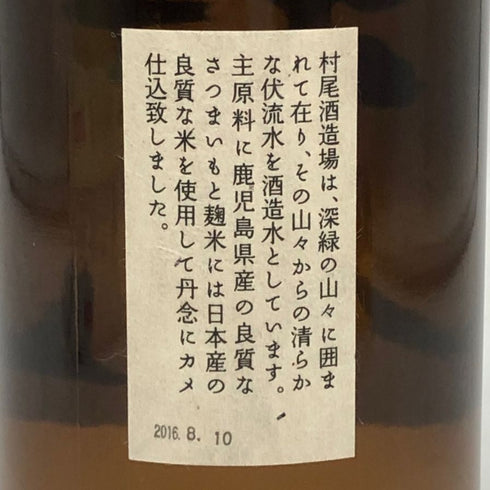 村尾酒造場は、深緑の山々に囲ま
れて在り、その山々からの清らか
な伏流水を酒造水としています。
主原料に鹿児島県産の良質な
さつまいもと麹米には日本産の
良質な米を使用して丹念にカメ
仕込致しました。
2016. 8. 10